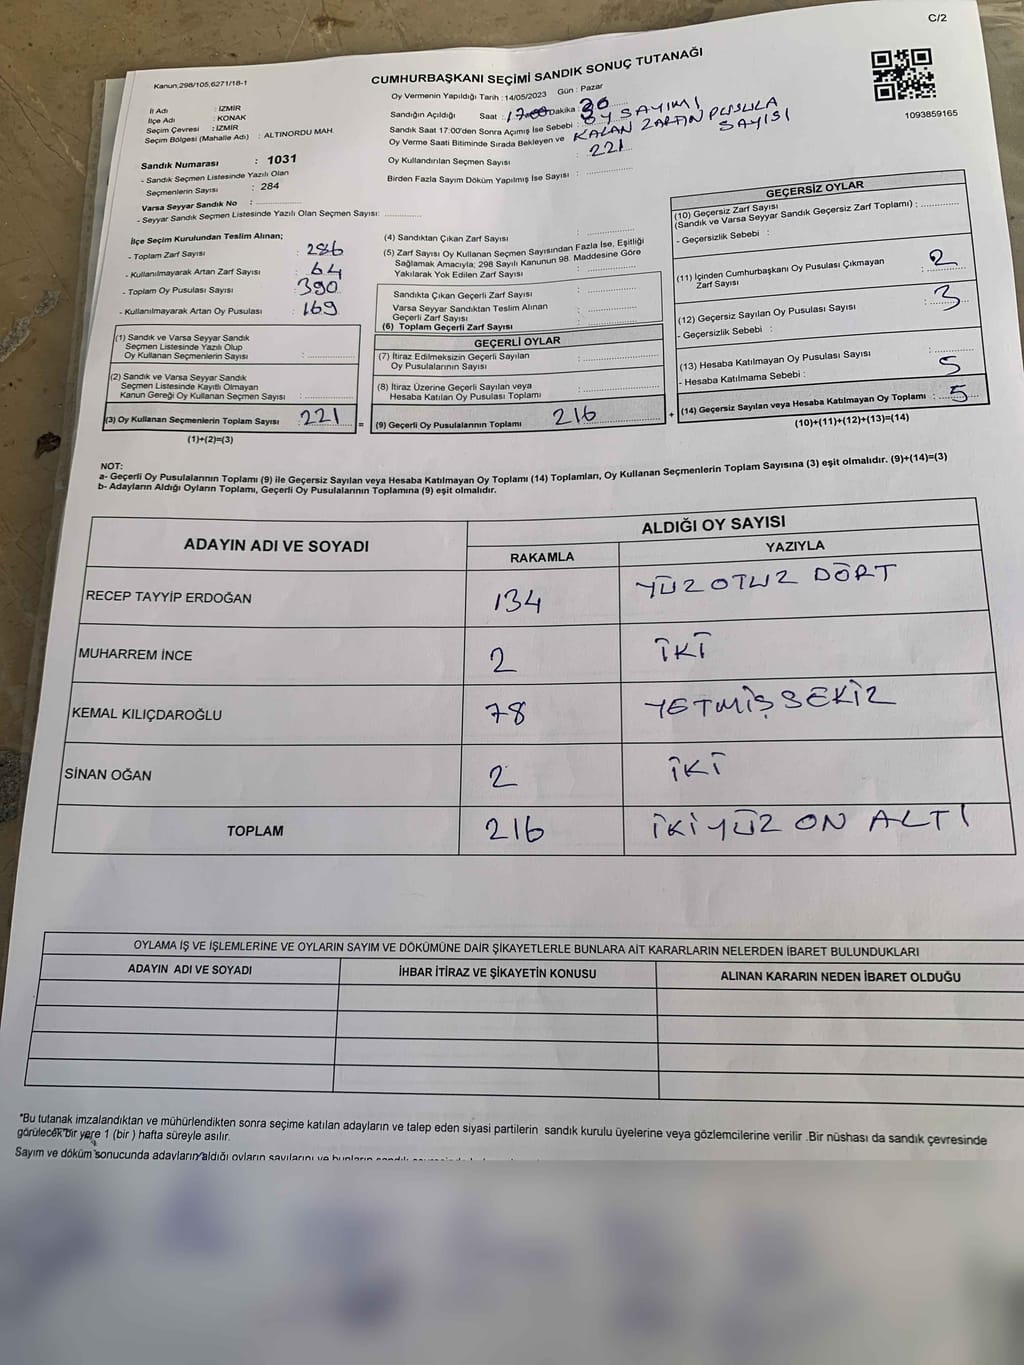 C/2
Kanun:298/105,6271/18-1
CUMHURBAŞKANI SEÇİMİ SANDIK SONUÇ TUTANAĞI
İl Adı : İZMİR
İlçe Adı : KONAK
Seçim Çevresi : İZMİR
Seçim Bölgesi (Mahalle Adı) : ALTINORDU MAH.
Sandık Numarası : 1031
- Sandık Seçmen Listesinde Yazılı Olan
Seçmenlerin Sayısı : 284
Varsa Seyyar Sandık No :
- Seyyar Sandık Seçmen Listesinde Yazılı Olan Seçmen Sayısı:
Oy Vermenin Yapıldığı Tarih : 14/05/2023 Gün : Pazar
Sandığın Açıldığı Saat : 17:00 Dakika : 30
Sandık Saat 17:00'den Sonra Açımış İse Sebebi : OY SAYIMI
Oy Verme Saati Bitiminde Sırada Bekleyen ve KALAN ZARFIN PUSULA SAYISI
Oy Kullandırılan Seçmen Sayısı : 221
Birden Fazla Sayım Döküm Yapılmış İse Sayısı :
1093859165
İlçe Seçim Kurulundan Teslim Alınan;
- Toplam Zarf Sayısı : 286
- Kullanılmayarak Artan Zarf Sayısı : 64
- Toplam Oy Pusulası Sayısı : 390
- Kullanılmayarak Artan Oy Pusulası : 169
(1) Sandık ve Varsa Seyyar Sandık
Seçmen Listesinde Yazılı Olup
Oy Kullanan Seçmenlerin Sayısı :
(2) Sandık ve Varsa Seyyar Sandık
Seçmen Listesinde Kayıtlı Olmayan
Kanun Gereği Oy Kullanan Seçmen Sayısı :
(3) Oy Kullanan Seçmenlerin Toplam Sayısı : 221 =
(1)+(2)=(3)
(4) Sandıktan Çıkan Zarf Sayısı :
(5) Zarf Sayısı Oy Kullanan Seçmen Sayısından Fazla İse, Eşitliği
Sağlamak Amacıyla; 298 Sayılı Kanunun 98. Maddesine Göre
Yakılarak Yok Edilen Zarf Sayısı :
Sandıkta Çıkan Geçerli Zarf Sayısı :
Varsa Seyyar Sandıktan Teslim Alınan
Geçerli Zarf Sayısı :
(6) Toplam Geçerli Zarf Sayısı :
GEÇERLİ OYLAR
(7) İtiraz Edilmeksizin Geçerli Sayılan
Oy Pusulalarının Sayısı :
(8) İtiraz Üzerine Geçerli Sayılan veya
Hesaba Katılan Oy Pusulası Toplamı :
(9) Geçerli Oy Pusulalarının Toplamı : 216 +
GEÇERSİZ OYLAR
(10) Geçersiz Zarf Sayısı
(Sandık ve Varsa Seyyar Sandık Geçersiz Zarf Toplamı) :
- Geçersizlik Sebebi :
(11) İçinden Cumhurbaşkanı Oy Pusulası Çıkmayan
Zarf Sayısı : 2
(12) Geçersiz Sayılan Oy Pusulası Sayısı : 3
- Geçersizlik Sebebi :
(13) Hesaba Katılmayan Oy Pusulası Sayısı :
- Hesaba Katılmama Sebebi : 5
(14) Geçersiz Sayılan veya Hesaba Katılmayan Oy Toplamı : 5
(10)+(11)+(12)+(13)=(14)
NOT:
a- Geçerli Oy Pusulalarının Toplamı (9) ile Geçersiz Sayılan veya Hesaba Katılmayan Oy Toplamı (14) Toplamları, Oy Kullanan Seçmenlerin Toplam Sayısına (3) eşit olmalıdır. (9)+(14)=(3)
b- Adayların Aldığı Oyların Toplamı, Geçerli Oy Pusulalarının Toplamına (9) eşit olmalıdır.
ADAYIN ADI VE SOYADI
ALDIĞI OY SAYISI
RAKAMLA YAZIYLA
RECEP TAYYİP ERDOĞAN 134 YÜZ OTUZ DÖRT
MUHARREM İNCE 2 İKİ
KEMAL KILIÇDAROĞLU 78 YETMİŞ SEKİZ
SİNAN OĞAN 2 İKİ
TOPLAM 216 İKİ YÜZ ON ALTI
OYLAMA İŞ VE İŞLEMLERİNE VE OYLARIN SAYIM VE DÖKÜMÜNE DAİR ŞİKAYETLERLE BUNLARA AİT KARARLARIN NELERDEN İBARET BULUNDUKLARI
ADAYIN ADI VE SOYADI İHBAR İTİRAZ VE ŞİKAYETİN KONUSU ALINAN KARARIN NEDEN İBARET OLDUĞU
*Bu tutanak imzalandıktan ve mühürlendikten sonra seçime katılan adayların ve talep eden siyasi partilerin sandık kurulu üyelerine veya gözlemcilerine verilir .Bir nüshası da sandık çevresinde
görülecek bir yere 1 (bir ) hafta süreyle asılır.
Sayım ve döküm sonucunda adayların aldığı oyların sayılarını ve bunların